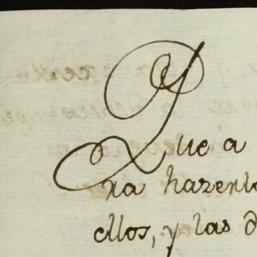 Que a
ra hazerl
ellos, y las d